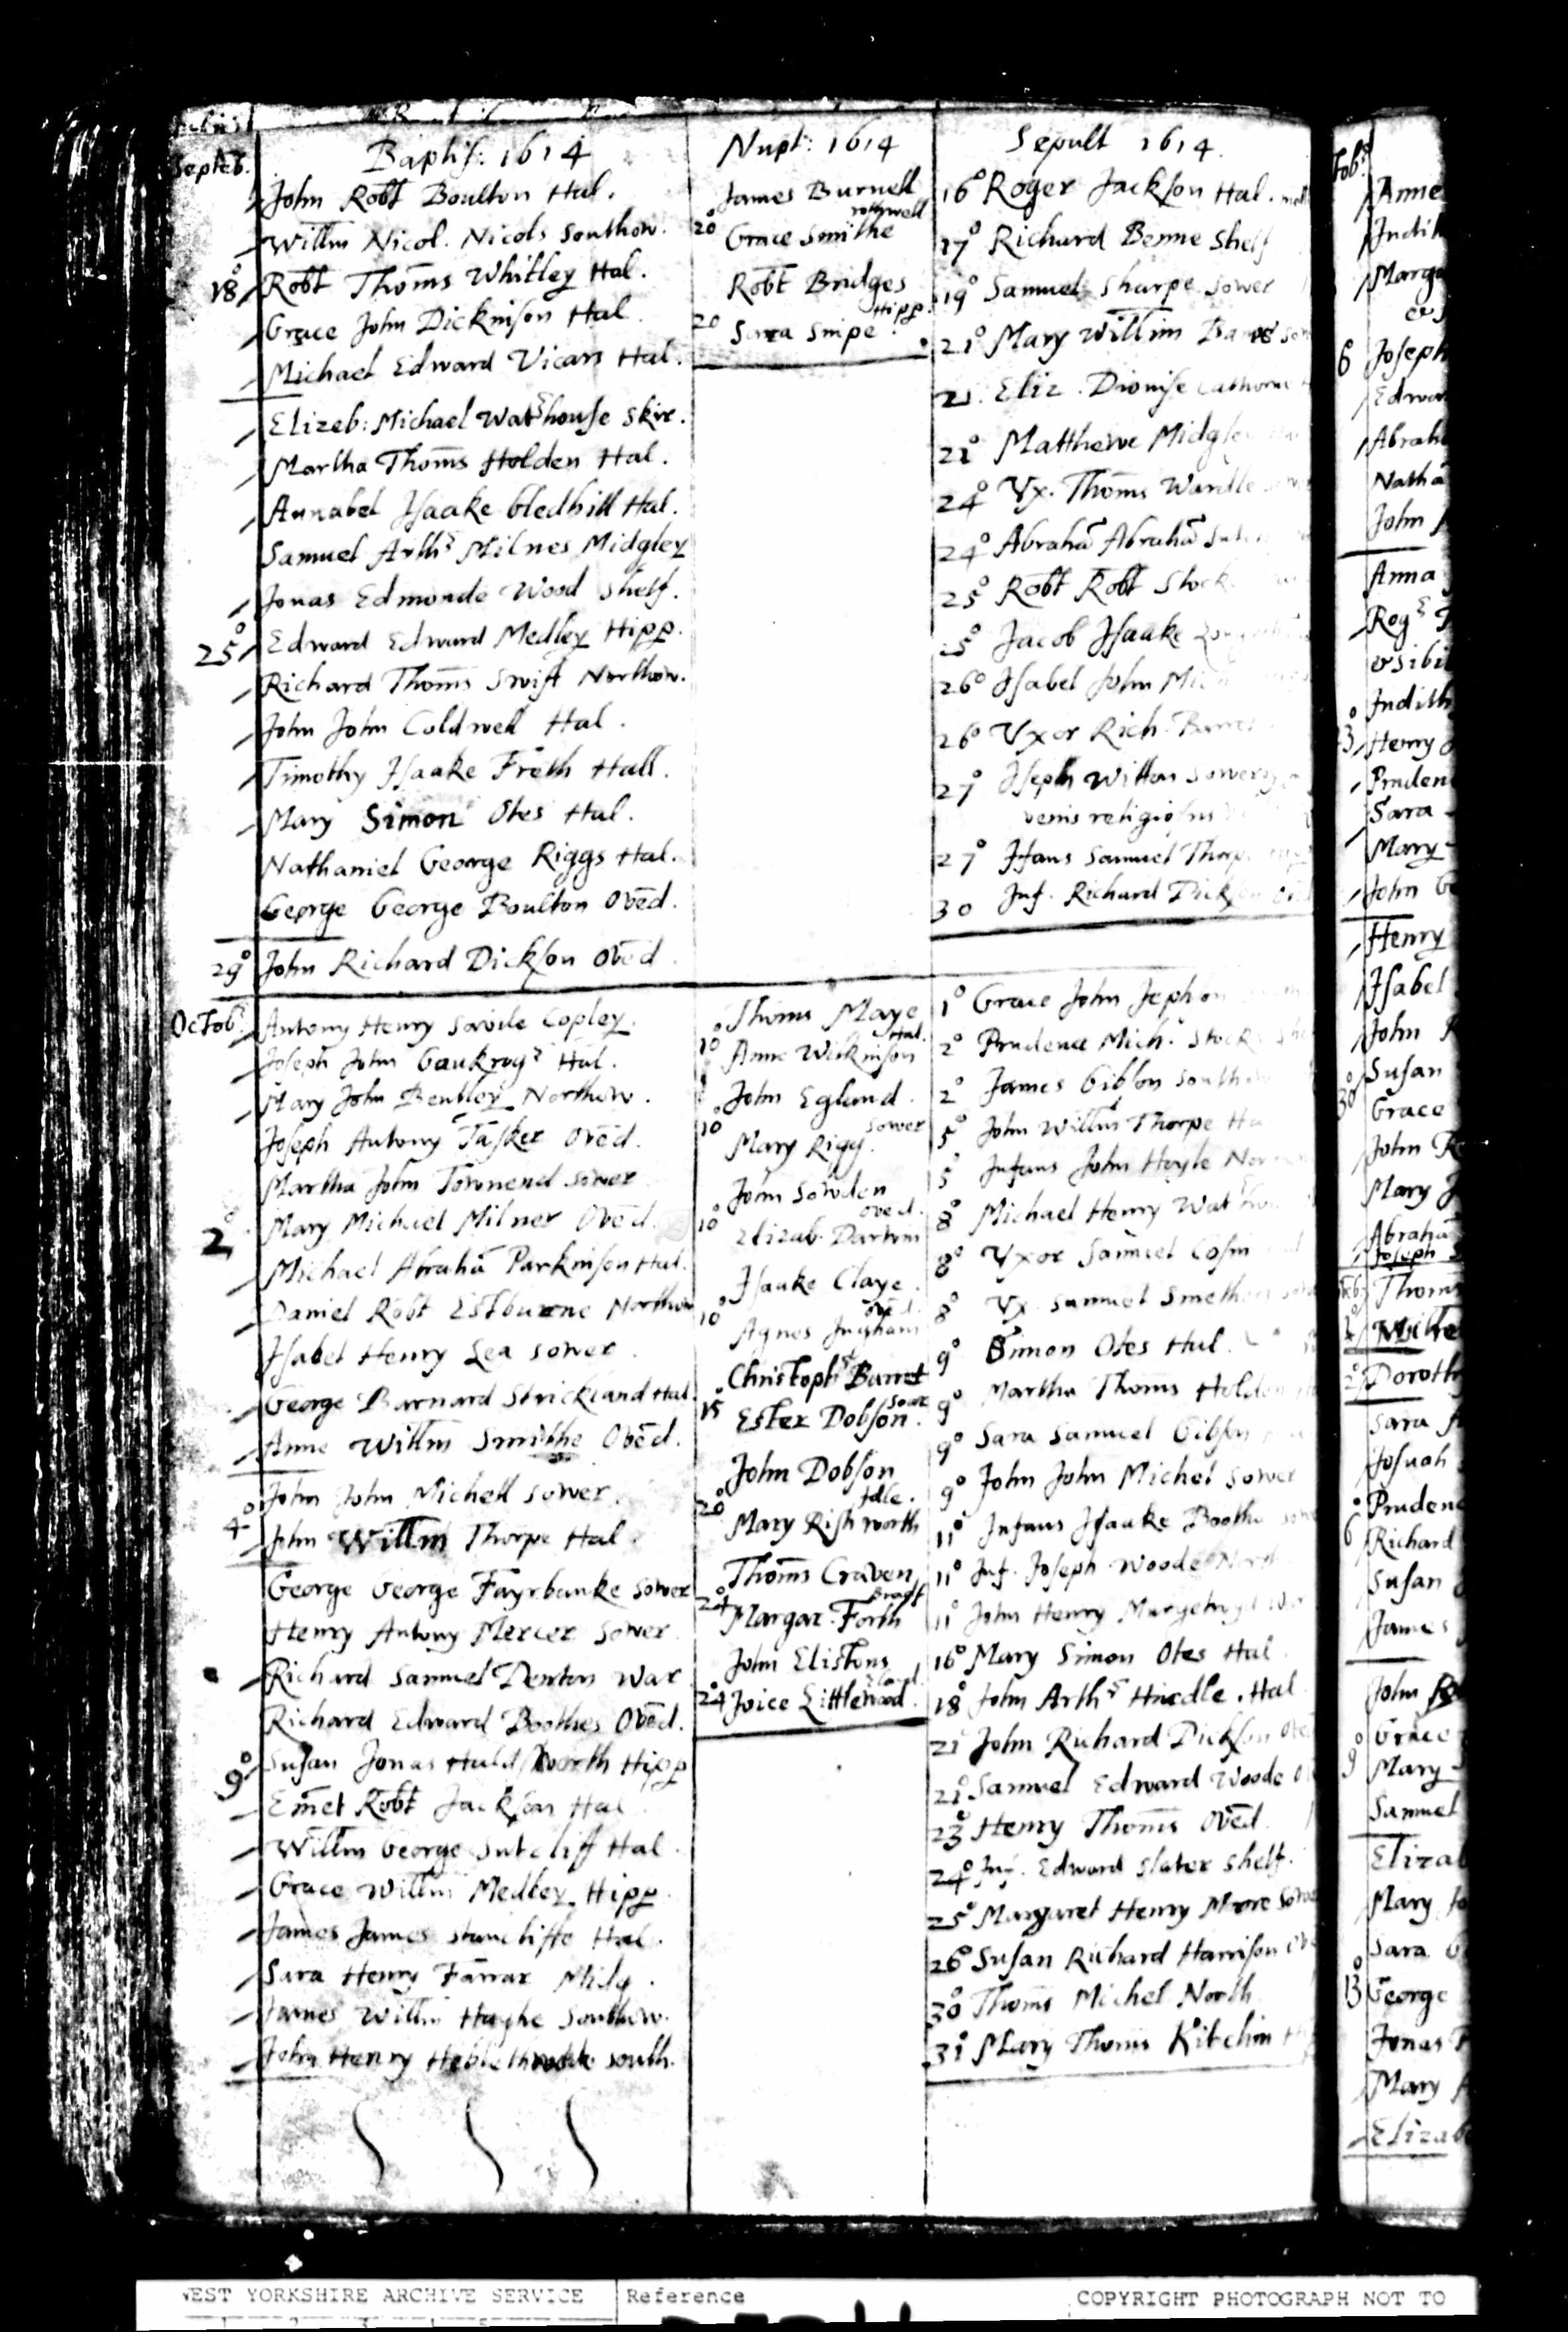 Septeb.
Baptis: 1614
John Robt Boulton Hal.
Willm Nicol. Nicols Southow.
18° Robt Thoms Whitley Hal.
Grace John Dickinson Hal.
Michael Edward Vicars Hal.
Elizeb: Michael Waterhouse Skir.
Martha Thoms Holden Hal.
Annabel Isaake Gledhill Hal.
Samuel Arthr Milnes Midgley
Jonas Edmonde Wood Shelf.
25° Edward Edward Medley Hipp.
Richard Thoms Swift Northow.
John John Coldwell Hal.
Timothy Isaake Freth Hall.
Mary Simon Otes Hal.
Nathaniel George Riggs Hal.
George George Boulton Oved.
29° John Richard Dickson Oved
Octob.
Antony Henry Savile Copley.
Joseph John Gaukrogr Hal.
Mary John Bentley Northow.
Joseph Antony Tasker Oved.
Martha John Townend Sower
2° Mary Michael Milner Oved.
Michael Abraha Parkinson Hal.
Daniel Robt Estburne Northow
Isabel Henry Lea Sower.
George Barnard Strickland Hal.
Anne Willm Smithe Oved.
John John Michell Sower.
4° John Willm Thorpe Hal.
George George Fayrbanke Sower
Henry Antony Mercer Sower
Richard Samuel Denton War
Richard Edward Boothes Oved.
9° Susan Jonas Haldsworth Hipp
Emet Robt Jackson Hal
Willm George Sutcliff Hal.
Grace Willm Medley Hipp.
James James Stancliffe Hal.
Sara Henry Farrar Midg.
James Willm Haghe Southow.
John Henry south.
Nupt: 1614
James Burnell
rothwell
20° Grace Smithe
Robt Bridges
Hipp.
20 Sara Snipe.
Thoms Maye
Hal.
10° Anne Wilkinson
John Egland.
Sower
10° Mary Rigg.
John Sowden
oved.
10° Elizab. Darton
Isaake Claye.
oved.
10° Agnes Ingham
Christophr Barret
Sower
15° Ester Dobson.
John Dobson
Idle.
20° Mary Rishworth
Thoms Craven
Bradf
24° Margar. Forth
John Elistons
24° Joice Littlewood.
Sepult 1614.
16° Roger Jackson Hal.
17° Richard Benne Shelf
19° Samuel Sharpe Sower
21° Mary Willim
21. Eliz. Dionise
21° Matthewe Midgley
24° Vx. Thoms Wardle
24° Abraha Abraha
25° Robt Robt Stock
25° Jacob Isaake
26° Isabel John
26° Vxor Rich.
27° Joseph Witton Sowerby
religiosus
27° Ifans Samuel Thorp
30 Inf. Richard Dickson
1° Grace John Jepson
2° Prudence Mich. Stock
2° James Gibson Southow
5° John Willm Thorpe Ha
5° Infans John Hoyle Nor
8° Michael Henry
8° Vxor Samuel Cosin
8° Vx. Samuel Smethe
9° Simon Otes Hal.
9° Martha Thoms Holden
9° Sara Samuel Gibson
9° John John Michel Sower
11° Infans Isaake Boothe
11° Inf. Joseph Woode North
11° John Henry
16° Mary Simon Otes Hal
18° John Arthr Hindle. Hal
21° John Richard Dickson
21° Samuel Edward Woode
23° Henry Thoms Oved.
24° Inf. Edward Slater Shelf.
25° Margaret Henry Moore Sower
26° Susan Richard Harrison
30° Thoms Michel North
31° Mary Thoms Kitchin
Anne
Judith
Marga
6 Joseph
Edwar
Abrah
Natha
John
Anna
Judith
Henry
Pruden
Sara
Mary
John
Henry
Isabel
John
Susan
30 Grace
John
Mary
Abraha
Joseph
Thoms
Doroth
Sara
Josuah
Pruden
6 Richard
Susan
James
John
9° Grace
Mary
Samuel
Elizab
Mary
Sara
13° George
Jonas
Mary
Elizab
WEST YORKSHIRE ARCHIVE SERVICE
Reference
COPYRIGHT PHOTOGRAPH NOT TO